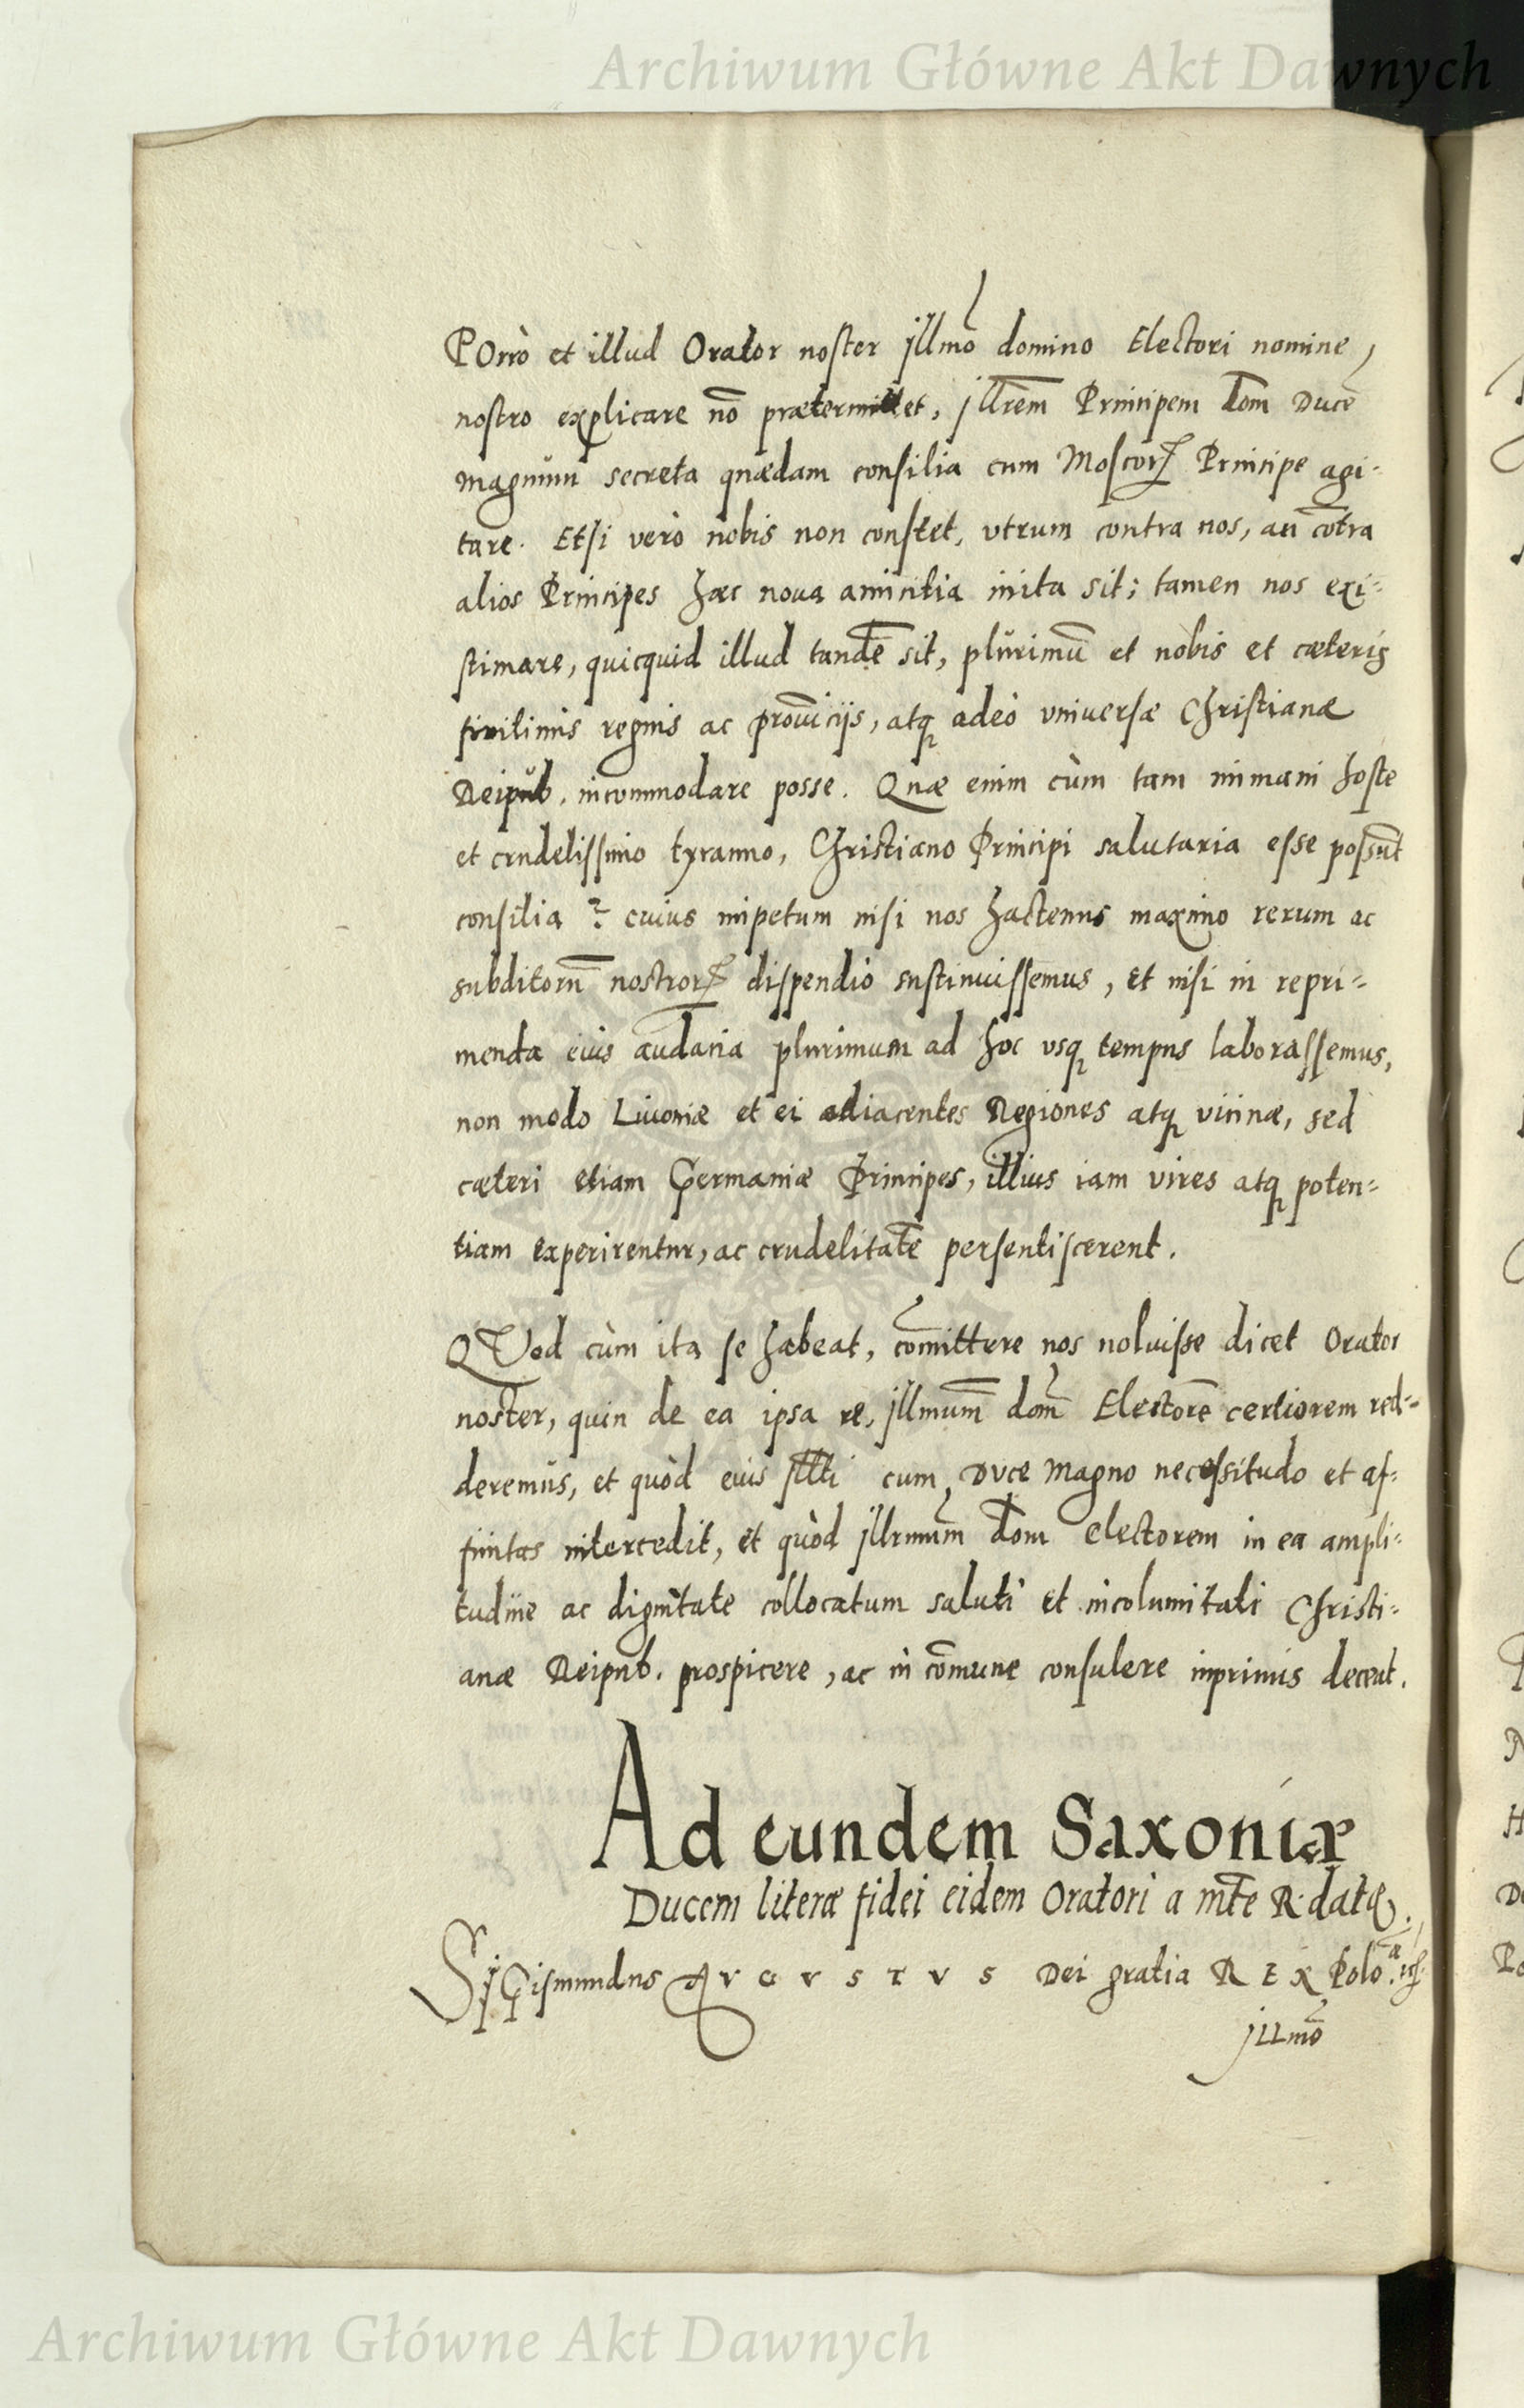 Archiwum Główne Akt Dawnych
POrrò et illud Orator noster jllmo̅ domino Electori nomine
nostro explicare no̅ prætermittet, jllre̅m Principem Dom̅ Duce̅
Magnum secreta quædam consilia cum Moscor̅ Principe agi-
tare. Etsi verò nobis non constet, vtrum contra nos, an co̅tra
alios Principes hæc noua amicitia inita sit; tamen nos exi-
stimare, quicquid illud tande̅ sit, plurimu̅ et nobis et cæteris
finitimis regnis ac prouincijs, atq adeò vniuersæ Christianæ
Reipub. incommodare posse. Quæ enim cùm tam immani hoste
et crudelissimo tyranno, Christiano Principi salutaria esse possu̅t
consilia ? cuius impetum nisi nos hactenus maximo rerum ac
subditoru̅ nostror̅ dispendio sustinuissemus, et nisi in repri-
menda eius audacia plurimum ad hoc vsq tempus laborassemus,
non modo Liuoniæ et ei adiacentes Regiones atq vicinæ, sed
cæteri etiam Germaniæ Principes, illius iam vires atq poten-
tiam experirentur, ac crudelitate̅ persentiscerent.
QVod cùm ita se habeat, co̅mittere nos noluisse dicet Orator
noster, quin de ea ipsa re, jllmum̅ dom̅ Electore̅ certiorem red-
deremus, et quòd eius jllti cum Dvce Magno necessitudo et af-
finitas intercedit, et quòd jllrmum̅ Dom̅ Electorem in ea ampli-
tudine ac dignitate collocatum saluti et incolumitati Christi-
anæ Reipub. prospicere, ac in co̅mune consulere inprimis deceat.
Ad eundem Saxoniæ
Ducem literæ fidei eidem Oratori a mte̅ R. datæ.
Sigismundus AVGVSTVS Dei gratia REX Polo.
jllmo̅
Archiwum Główne Akt Dawnych